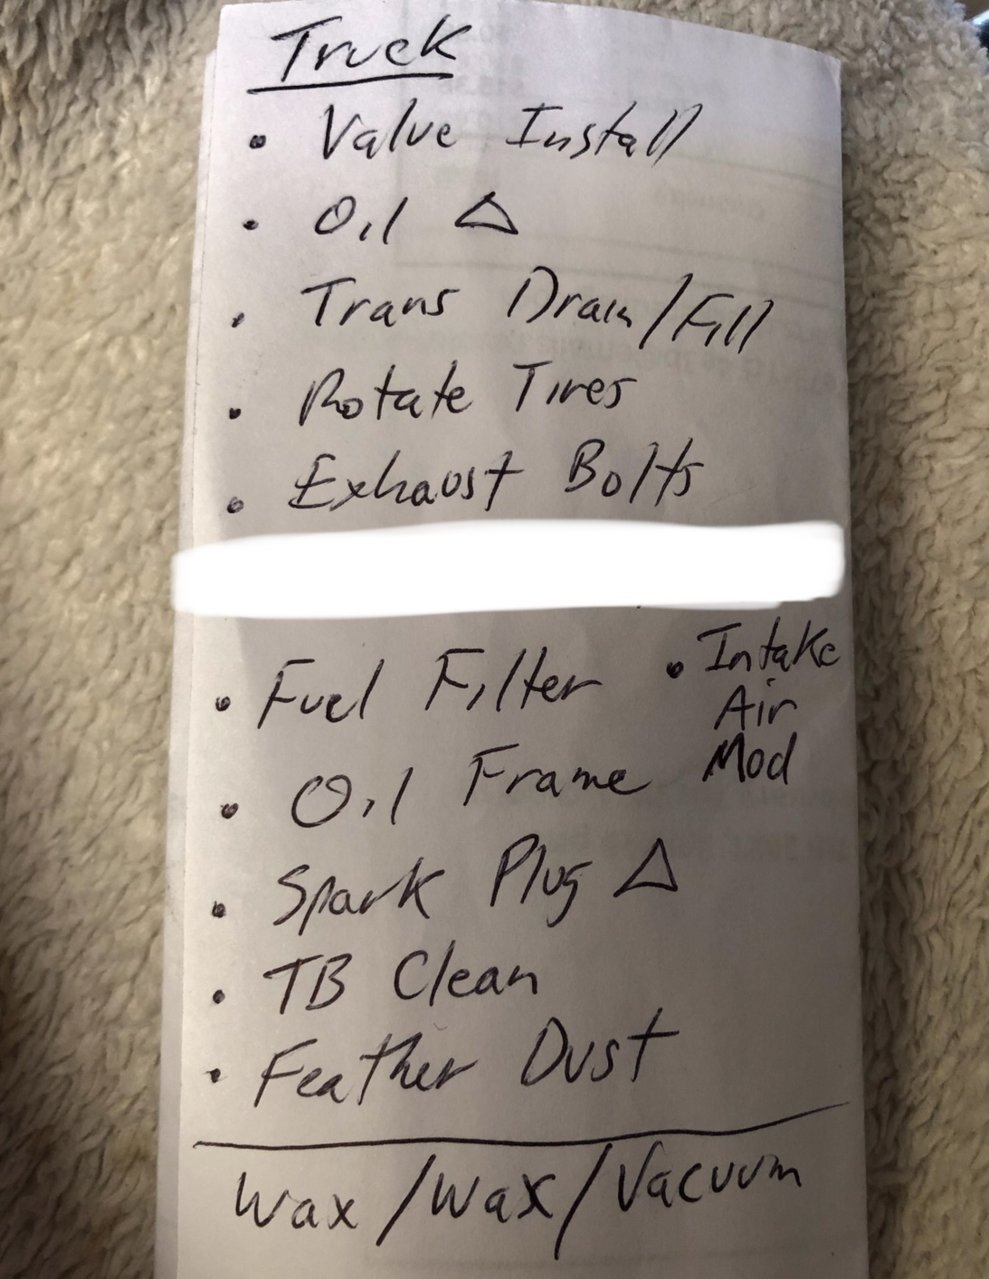 Truck
• Valve Install
• Oil △
• Trans Drain/Fill
• Rotate Tires
• Exhaust Bolts
• Fuel Filter
• Intake
Air
Mod
• Oil Frame
• Spark Plug △
• TB Clean
• Feather Dust
Wax/Wax/Vacuum